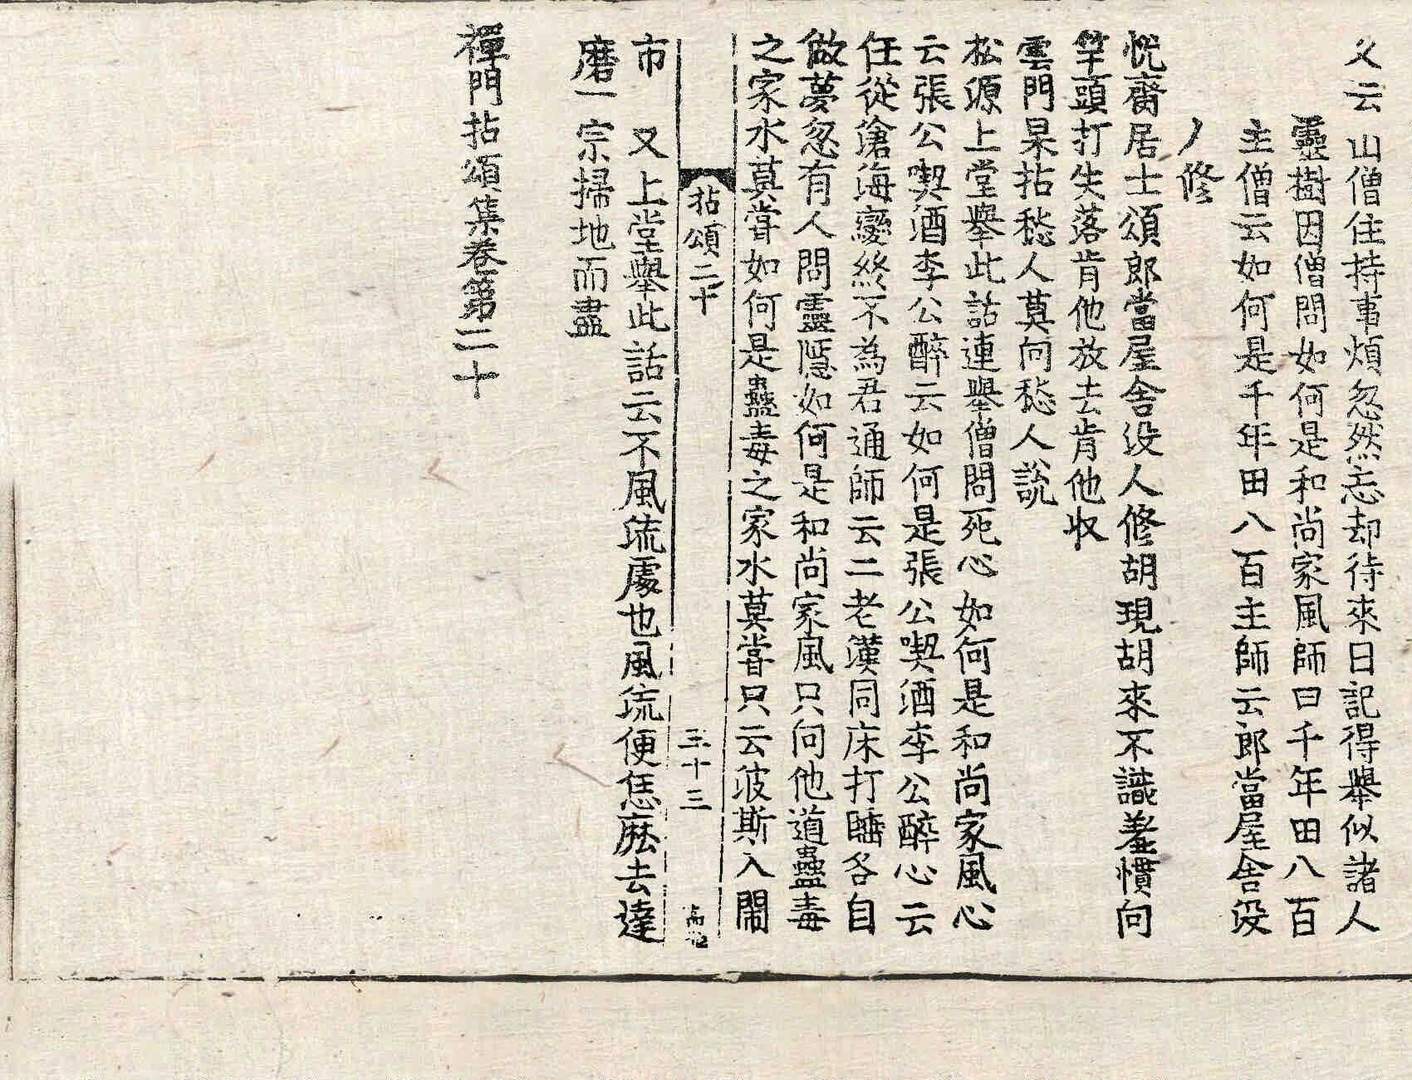 又云 山僧住持事煩忽然忘却待來日記得舉似諸人
靈樹因僧問如何是和尚家風師曰千年田八百
主僧云如何是千年田八百主師云郎當屋舍没
人修
恱齋居士頌郎當屋舍没人修胡現胡來不識羞慣向
竿頭打失落肯他放去肯他収
雲門杲拈愁人莫向愁人說
松源上堂舉此話連舉僧問死心如何是和尚家風心
云張公喫酒李公醉云如何是張公喫酒李公醉心云
任從滄海變終不為君通師云二老漢同床打睡各自
做夢忽有人問靈隱如何是和尚家風只向他道蠱毒
之家水莫甞如何是蠱毒之家水莫甞只云波斯入閙
拈頌二十
三十三
市 又上堂舉此話云不風流處也風流便恁麽去達
磨一宗掃地而盡
禪門拈頌集卷第二十